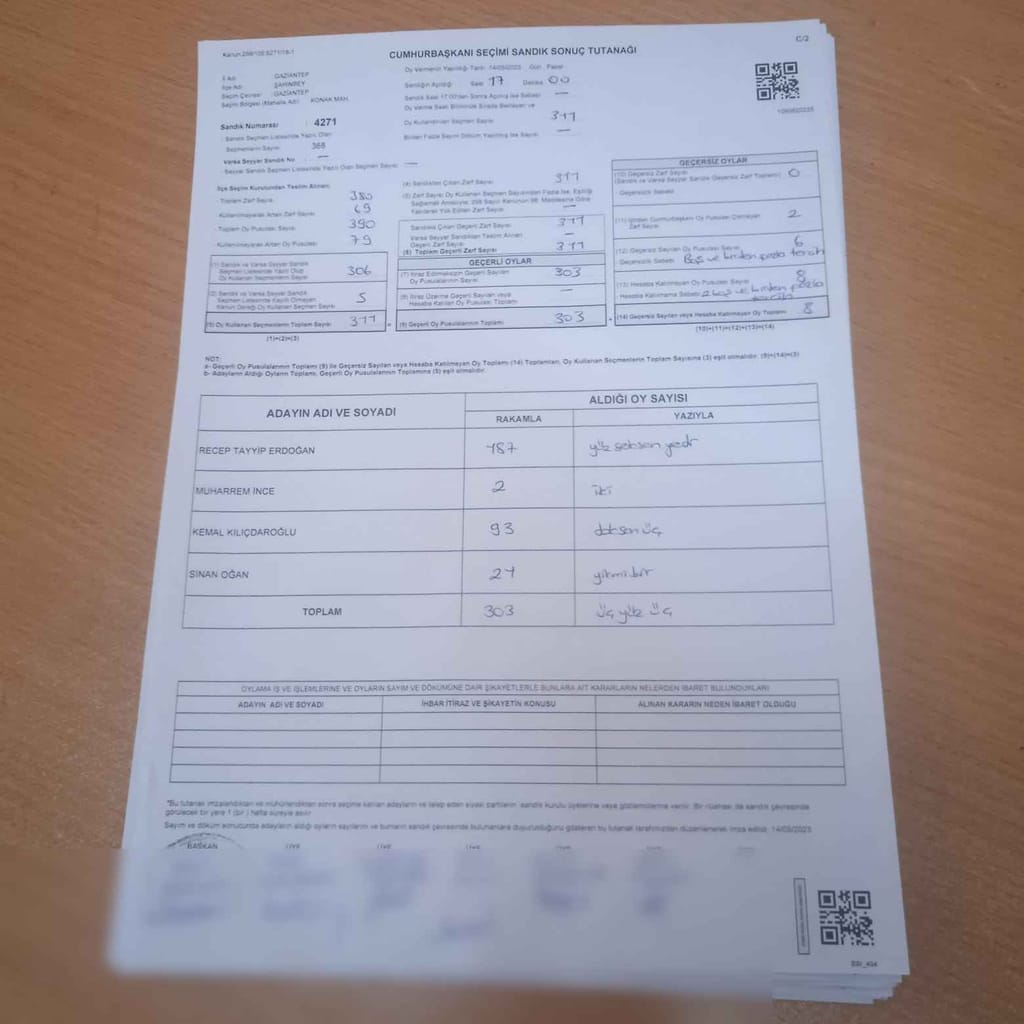 Kanun:298/105;6271/18-1
C/2
CUMHURBAŞKANI SEÇİMİ SANDIK SONUÇ TUTANAĞI
İl Adı : GAZİANTEP
İlçe Adı : ŞAHİNBEY
Seçim Çevresi : GAZİANTEP
Seçim Bölgesi (Mahalle Adı) : KONAK MAH.
Oy Vermenin Yapıldığı Tarih: 14/05/2023 Gün: Pazar
Sandığın Açıldığı Saat 17 Dakika 00
Sandık Saat 17:00'den Sonra Açılmış İse Sebebi —
Oy Verme Saati Bitiminde Sırada Bekleyen ve
Oy Kullandırılan Seçmen Sayısı 311
Birden Fazla Sayım Döküm Yapılmış İse Sayısı —
Sandık Numarası : 4271
Sandık Seçmen Listesinde Yazılı Olan
Seçmenlerin Sayısı : 368
Varsa Seyyar Sandık No —
Seyyar Sandık Seçmen Listesinde Yazılı Olan Seçmen Sayısı —
İlçe Seçim Kurulundan Teslim Alınan;
- Toplam Zarf Sayısı 380
- Kullanılmayarak Artan Zarf Sayısı 69
- Toplam Oy Pusulası Sayısı 390
- Kullanılmayarak Artan Oy Pusulası 79
(1) Sandık ve Varsa Seyyar Sandık
Seçmen Listesinde Yazılı Olup
Oy Kullanan Seçmenlerin Sayısı 306
(2) Sandık ve Varsa Seyyar Sandık
Seçmen Listesinde Kayıtlı Olmayan
Kanun Gereği Oy Kullanan Seçmen Sayısı 5
(3) Oy Kullanan Seçmenlerin Toplam Sayısı 311
(1)+(2)=(3)
(4) Sandıktan Çıkan Zarf Sayısı 311
(5) Zarf Sayısı Oy Kullanan Seçmen Sayısından Fazla İse, Eşitliği
Sağlamak Amacıyla; 298 Sayılı Kanunun 98. Maddesine Göre
Yakılarak Yok Edilen Zarf Sayısı —
Sandıkta Çıkan Geçerli Zarf Sayısı 311
Varsa Seyyar Sandıktan Teslim Alınan
Geçerli Zarf Sayısı —
(6) Toplam Geçerli Zarf Sayısı 311
GEÇERLİ OYLAR
(7) İtiraz Edilmeksizin Geçerli Sayılan
Oy Pusulalarının Sayısı 303
(8) İtiraz Üzerine Geçerli Sayılan veya
Hesaba Katılan Oy Pusulası Toplamı —
(9) Geçerli Oy Pusulalarının Toplamı 303
GEÇERSİZ OYLAR
(10) Geçersiz Zarf Sayısı 0
(Sandık ve Varsa Seyyar Sandık Geçersiz Zarf Toplamı)
Geçersizlik Sebebi
(11) İçinden Cumhurbaşkanı Oy Pusulası Çıkmayan
Zarf Sayısı 2
(12) Geçersiz Sayılan Oy Pusulası Sayısı 6
Geçersizlik Sebebi Boş ve birden fazla tercih
(13) Hesaba Katılmayan Oy Pusulası Sayısı 8
Hesaba Katılmama Sebebi 2 boş ve birden fazla
tercih
(14) Geçersiz Sayılan veya Hesaba Katılmayan Oy Toplamı 8
(10)+(11)+(12)+(13)=(14)
NOT:
a- Geçerli Oy Pusulalarının Toplamı (9) ile Geçersiz Sayılan veya Hesaba Katılmayan Oy Toplamı (14) Toplamları, Oy Kullanan Seçmenlerin Toplam Sayısına (3) eşit olmalıdır. (9)+(14)=(3)
b- Adayların Aldığı Oyların Toplamı, Geçerli Oy Pusulalarının Toplamına (9) eşit olmalıdır.
ADAYIN ADI VE SOYADI
ALDIĞI OY SAYISI
RAKAMLA YAZIYLA
RECEP TAYYİP ERDOĞAN 187 yüz seksen yedi
MUHARREM İNCE 2 iki
KEMAL KILIÇDAROĞLU 93 doksan üç
SİNAN OĞAN 21 yirmi bir
TOPLAM 303 üç yüz üç
OYLAMA İŞ VE İŞLEMLERİNE VE OYLARIN SAYIM VE DÖKÜMÜNE DAİR ŞİKAYETLERLE BUNLARA AİT KARARLARIN NELERDEN İBARET BULUNDUKLARI
ADAYIN ADI VE SOYADI İHBAR İTİRAZ VE ŞİKAYETİN KONUSU ALINAN KARARIN NEDEN İBARET OLDUĞU
*Bu tutanak imzalandıktan ve mühürlendikten sonra seçime katılan adayların ve talep eden siyasi partilerin sandık kurulu üyelerine veya gözlemcilerine verilir. Bir nüshası da sandık çevresinde
görülecek bir yere 1 (bir ) hafta süreyle asılır.
Sayım ve döküm sonucunda adayların aldığı oyların sayılarını ve bunların sandık çevresinde bulunanlara duyurulduğunu gösteren bu tutanak tarafımızdan düzenlenerek imza edildi. 14/05/2023
BAŞKAN ÜYE ÜYE ÜYE ÜYE ÜYE